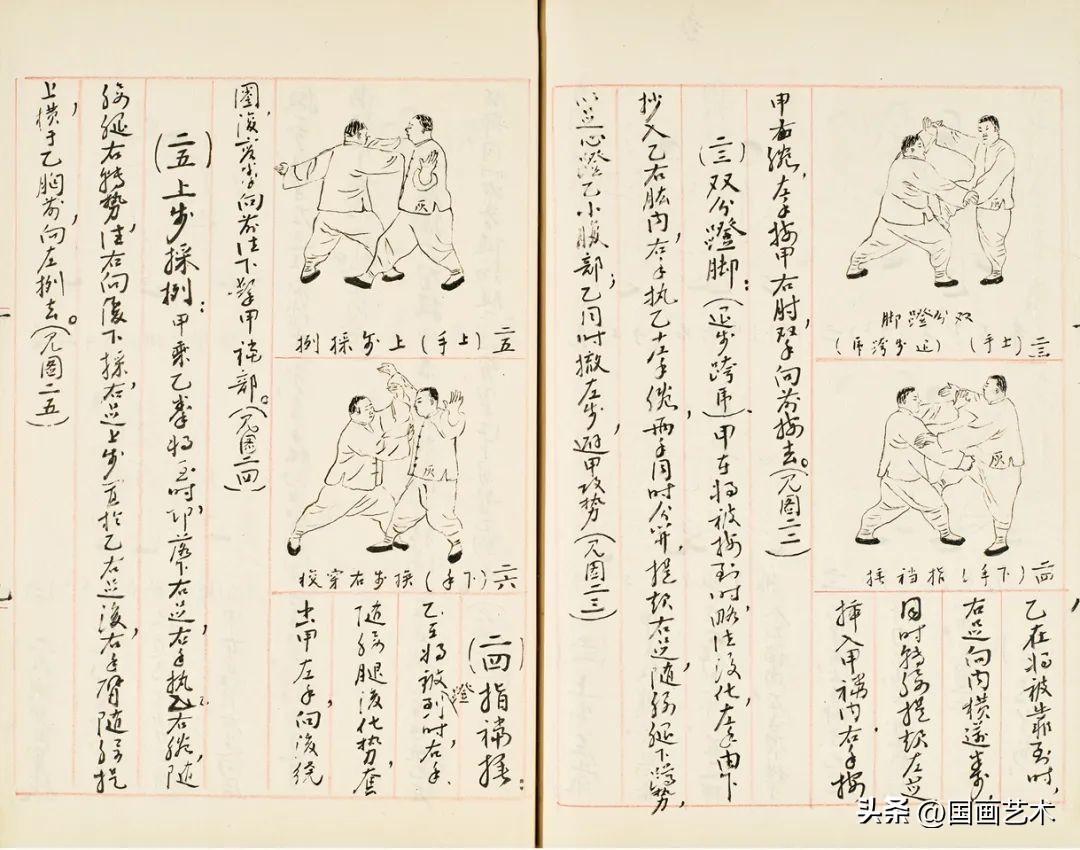 二三（上手）双分蹬脚
（退步跨虎）
灰
二四（下手）指裆捶
乙在将被靠到时，
右足向内横迈半步，
同时转腰提起左足
插入甲裆内，右手按
甲右腕，左手按甲右肘，双手向前按去。（见图二二）
（二三）双分蹬脚：（退步跨虎）甲在将被按到时，略往后化，左手由下
抄入乙右肱内，右手执乙左手腕，两手同时分开，提起右足随腰腿下蹲势，
以足心蹬乙小腹部；乙同时撤左步，避甲攻势（见图二三）
灰
二五（上手）上步採挒
灰
二六（下手）换步右穿梭
（二四）指裆捶：
乙在将被蹬到时，右手
随腰腿后化势套
出甲左手向后绕
圈，复握拳向前往下击甲裆部。（见图二四）
（二五）上步採挒：甲乘乙拳将至时，即落下右足，右手执乙右腕，随
腰腿右转势，往右向后下採，右足上步置於乙右足后，右手臂随腰提
上横于乙胸前向左挒去。（见图二五）
头条 @国画艺术